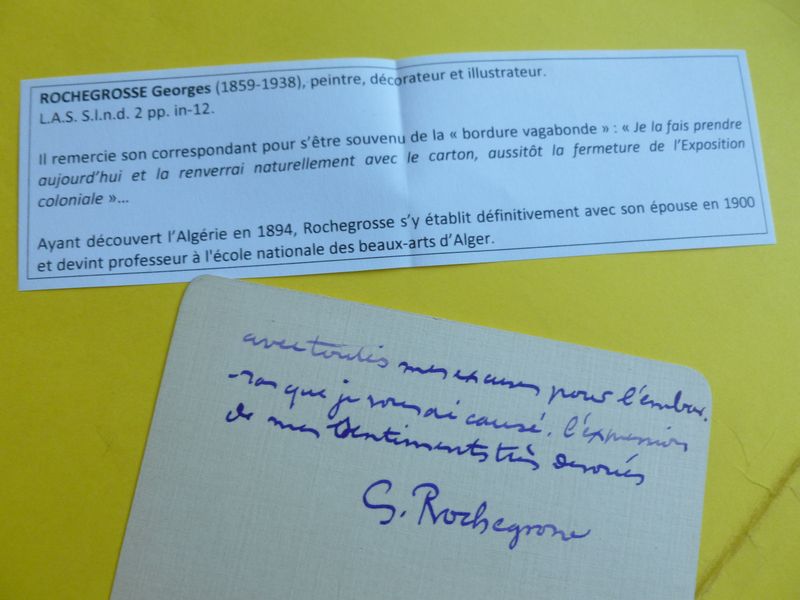 ROCHEGROSSE Georges (1859-1938), peintre, décorateur et illustrateur.
L.A.S. S.l.n.d. 2 pp. in-12.
Il remercie son correspondant pour s'être souvenu de la « bordure vagabonde » : « Je la fais prendre
aujourd'hui et la renverrai naturellement avec le carton, aussitôt la fermeture de l'Exposition
coloniale »...
Ayant découvert l'Algérie en 1894, Rochegrosse s'y établit définitivement avec son épouse en 1900
et devint professeur à l'école nationale des beaux-arts d'Alger.
avec toutes mes excuses pour l'embar-
ras que je vous ai causé. l'expression
de mes sentiments très dévoués
G. Rochegrosse